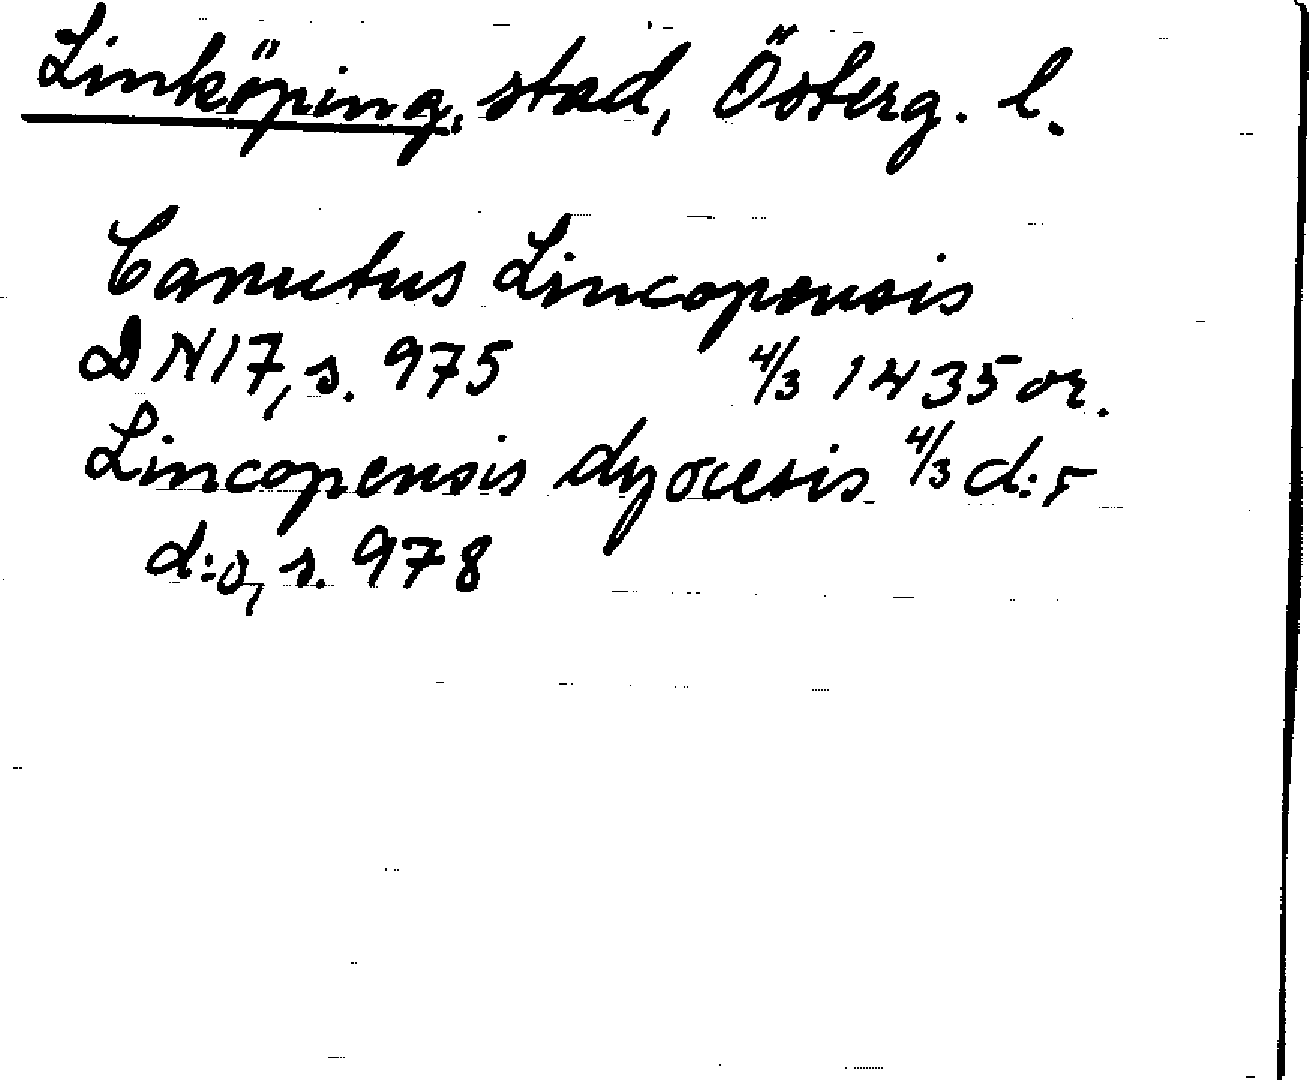 Linköping, stad, Österg. l.
Canutus Lincopensis
DN17, s. 975 4/3 1435 or.
Lincopensis dyocesis 4/3 d:r
d:o, s. 978